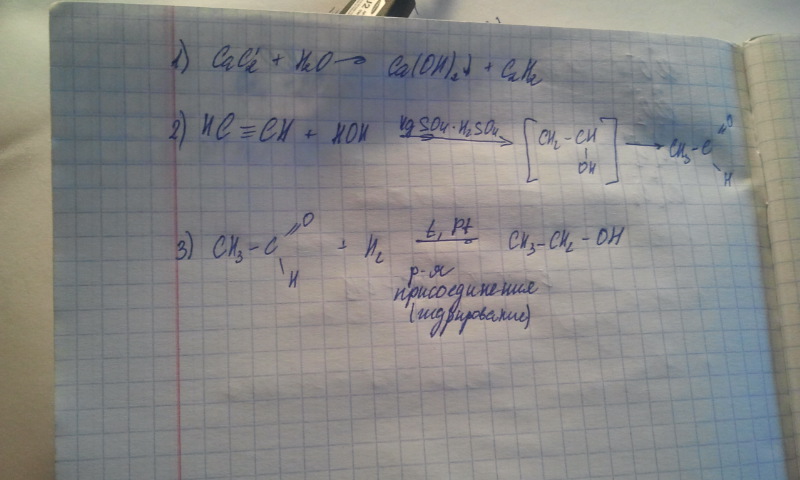 1) CaC2 + H2O → Ca(OH)2↓ + C2H2
2) HC≡CH + HOH HgSO4·H2SO4 → [CH2-CH OH] → CH3-C =O H
3) CH3-C =O H + H2 t, Pt → CH3-CH2-OH
р-я
присоединения
(гидрирование)